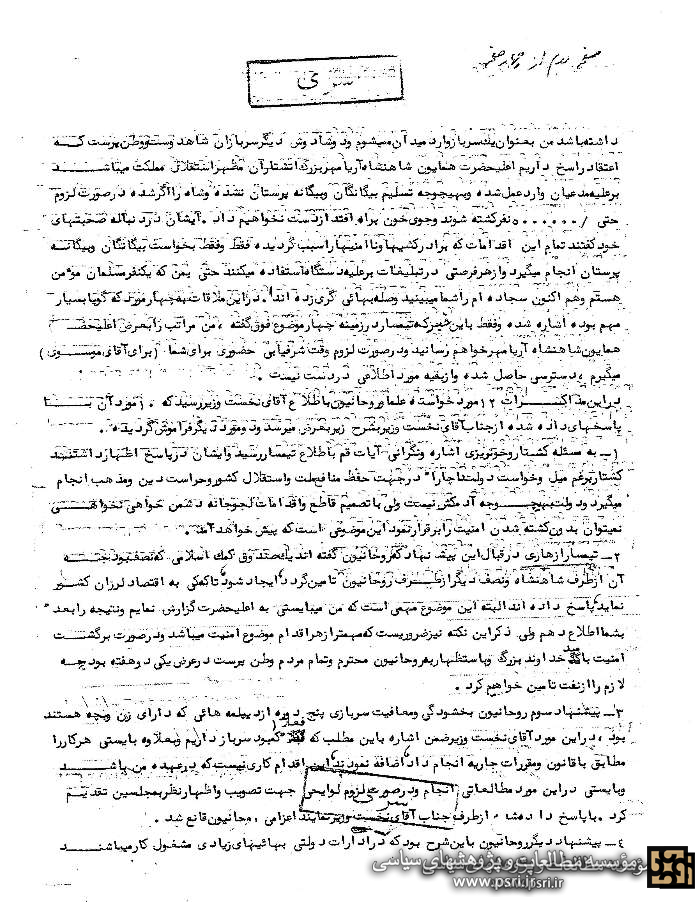 صفحه دوم از چهار صفحه
سری
داشته باشد من بعنوان یك سرباز وارد میدان میشوم ودوشادوش دیگر سربازان شاهدوست ووطن پرست که
اعتقاد راسخ داریم اعلیحضرت همایون شاهنشاه آریامهر بزرگ ارتشتاران مظهر استقلال مملکت میباشند
برعلیه مدعیان وارد عمل شده وبهیچوجه تسلیم بیگانگان وبیگانه پرستان نشده وشاه را اگر شده درصورت لزوم
حتی نفر کشته شوند وجوی خون براه افتد ازدست نخواهیم داد . ایشان در دنباله صحبتهای
خود گفتند تمام این اقدامات که برادرکشیها وناامنیها را سبب گردیده فقط وفقط بخواست بیگانگان وبیگانه
پرستان انجام میگیرد واز هر فرصتی در تبلیغات برعلیه دستگاه استفاده میکنند حتی بمن که یکنفر مسلمان مؤمن
هستم وهم اکنون سجاده ام را شما میبینید وصله بهائی گری زده اند . دراین ملاقات به چهار مورد که گویا بسیار
مهم بوده اشاره شده وفقط باین که تیمسار در زمینه چهار موضوع فوق گفته ، من مراتب را بعرض اعلیحضرت
همایون شاهنشاه آریامهر خواهم رسانید ودرصورت لزوم وقت شرفیابی حضوری برای شما ( برای آقای موسوی )
میگیرم ، دسترسی حاصل شده وازبقیه مورد اطلاعی دردست نیست .
دراین مذاکرات ۱۲ مورد خواسته علما وروحانیون باطلاع آقای نخست وزیر رسید که مورد آن با
پاسخهای داده شده از جناب آقای نخست وزیر بشرح زیر بعرض میرسد ودو مورد دیگر فراموش گردیده .
۱ـ به مسئله کشتار وخونریزی اشاره ونگرانی آیات قم باطلاع تیمسار رسید وایشان درپاسخ اظهار داشتند
کشتار برغم میل وخواست دولت ناچارا" درجهت حفظ منافع ملت واستقلال کشور وحراست دین ومذهب انجام
میگیرد ودولت بهیچوجه آدمکش نیست ولی با تصمیم قاطع واقدامات لجوجانه دشمن خواهی نخواهی
نمیتوان بدون کشته شدن امنیت را برقرار نمود این موضوعی است که پیش خواهد آمد .
۲ـ تیمسار ازهاری درقبال این پیشنهاد که روحانیون گفته اند یك صندوق کمك اسلامی که نصف بودجه
آن از طرف شاهنشاه ونصف دیگر از طرف روحانیون تامین گردد ایجاد شود تا کمکی به اقتصاد لرزان کشور
نماید پاسخ داده اند البته این موضوع مهمی است که من میبایستی به اعلیحضرت گزارش نمایم ونتیجه را بعدا"
بشما اطلاع دهم ولی ذکر این نکته نیز ضروریست که مهمتر از هر اقدام موضوع امنیت میباشد ودرصورت برگشت
امنیت بامید خداوند بزرگ وبا ستظهار به روحانیون محترم وتمام مردم وطن پرست درعرض یکی دوهفته بودجه
لازم را از نفت تامین خواهیم کرد .
۳ـ پیشنهاد سوم روحانیون بخشودگی ومعافیت سربازی پنج دوره از دیپلمه هائی که دارای زن وبچه هستند
بود ، دراین مورد آقای نخست وزیر ضمن اشاره باین مطلب که فعلا" کمبود سرباز داریم وبعلاوه بایستی هرکار را
مطابق با قانون ومقررات جاریه انجام داد اضافه نمودند این اقدام کاری نیست که درعهده من باشد
وبایستی دراین مورد مطالعاتی انجام ودرصورت لزوم لوایحی جهت تصویب واظهار نظر بمجلسین تقدیم
کرد . با پاسخ داده شده از طرف جناب آقای نخست وزیر نمایند اعزامی روحانیون قانع شد .
سری
۴ـ پیشنهاد دیگر روحانیون باین شرح بود که درادارات دولتی بهائیهای زیادی مشغول کار میباشند
مؤسسه مطالعات و پژوهشهای سیاسی
www.psri.ir